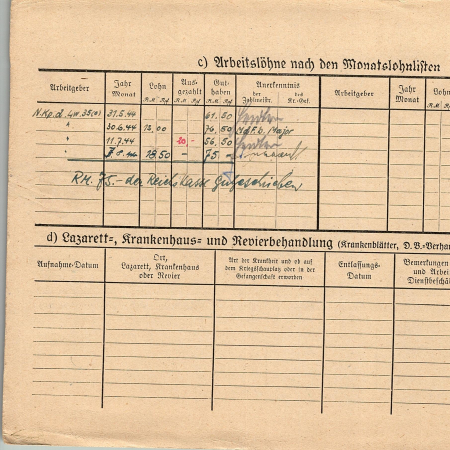 c) Arbeitslöhne nach den Monatslohnlisten
Arbeitgeber Jahr Monat Lohn R.M. Rpf Ausgezahlt R.M. Rpf Guthaben R.M. Rpf Anerkenntnis der Zahlmeistr. des Kr.-Gef. Arbeitgeber Jahr Monat Lohn R.M.
31.5.44 61.50
" 30.6.44 15,00 76,50 Major
" 11.7.44 20 - 56,50
18.50 - 75.-
RM. 75.- der Reichskasse gutgeschrieben
d) Lazarett-, Krankenhaus- und Revierbehandlung (Krankenblätter, D.B.-Verha
Aufnahme-Datum
Ort, Lazarett, Krankenhaus oder Revier
Art der Krankheit und ob auf dem Kriegsschauplatz oder in der Gefangenschaft erworben
Entlassungs-Datum
Bemerkungen und Arbei Dienstbeschä